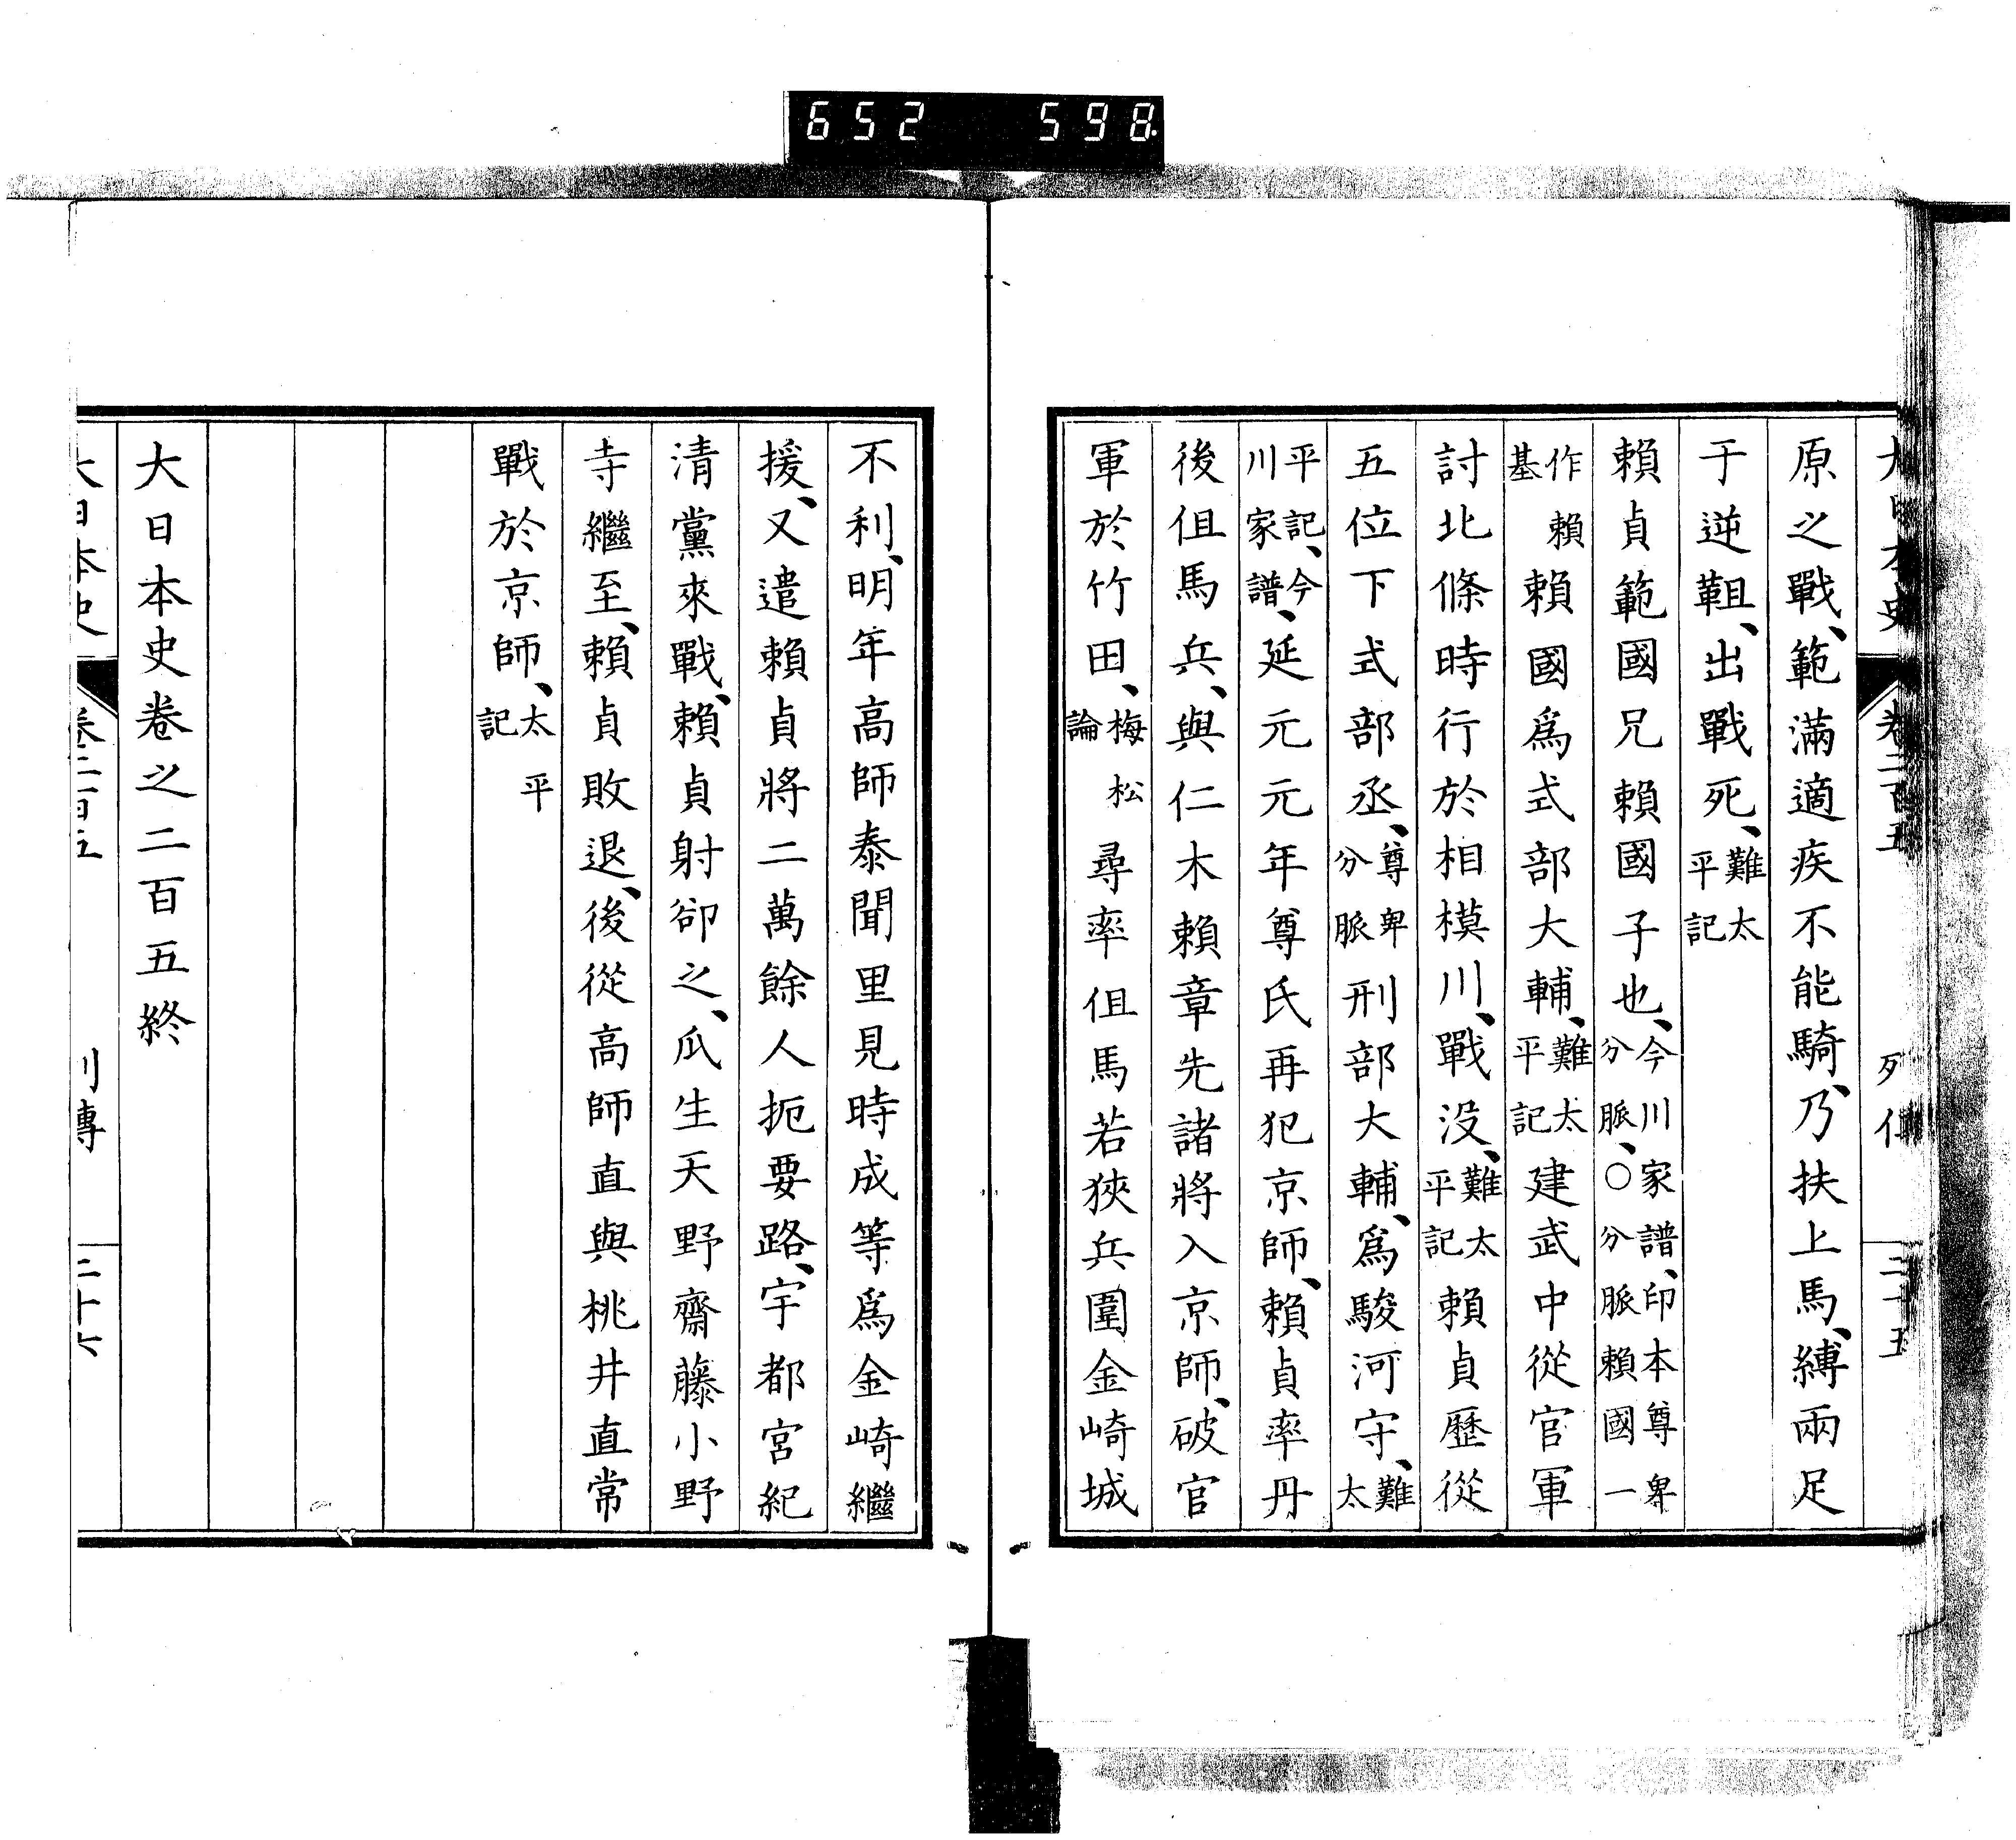 652 598
大日本史 卷二百五 列傳 二十五
原之戰、範滿適疾不能騎、乃扶上馬、縛兩足
于逆靻、出戰死、難太平記
賴貞範國兄賴國子也、今川家譜、印本尊卑分脈、○分脈賴國一
作賴基賴國爲式部大輔、難太平記建武中從官軍
討北條時行於相模川、戰沒、難太平記賴貞歷從
五位下式部丞、尊卑分脈刑部大輔、爲駿河守、難太
平記、今川家譜、延元元年尊氏再犯京師、賴貞率丹
後伹馬兵、與仁木賴章先諸將入京師、破官
軍於竹田、梅松論尋率伹馬若狹兵圍金崎城
不利、明年高師泰聞里見時成等爲金崎繼
援、又遣賴貞將二萬餘人扼要路、宇都宮紀
清黨來戰、賴貞射卻之、瓜生天野齋藤小野
寺繼至、賴貞敗退、後從高師直與桃井直常
戰於京師、太平記
大日本史卷之二百五終
大日本史 卷二百五 列傳 二十六